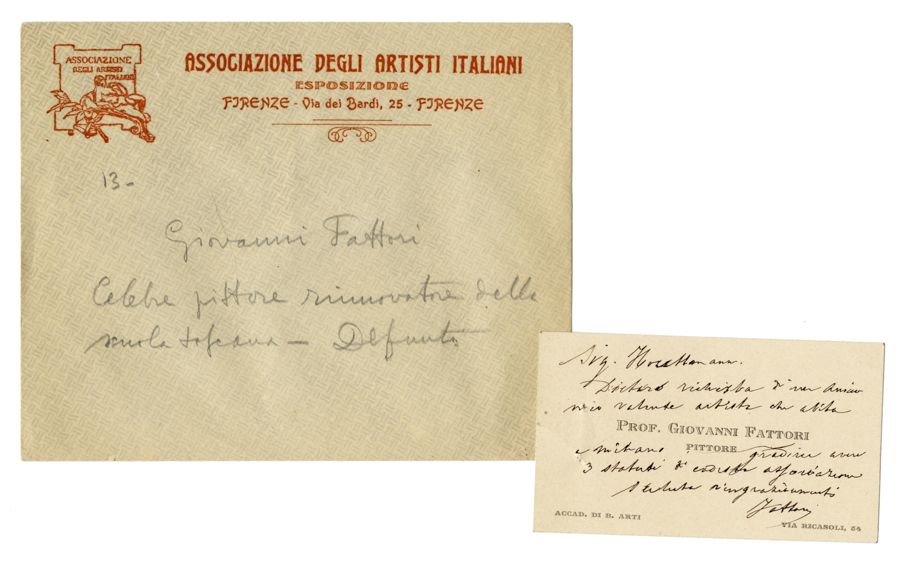 ASSOCIAZIONE
DEGLI ARTISTI
ITALIANI
ASSOCIAZIONE DEGLI ARTISTI ITALIANI
ESPOSIZIONE
FIRENZE - Via dei Bardi, 25 - FIRENZE
13-
Giovanni Fattori
Celebre pittore rinnovatore della
scuola toscana — Defunto
Sig.
Dietro richiesta di un amico
mio valente artista che abita
PROF. GIOVANNI FATTORI
a Milano PITTORE gradirei avere
3 statuti di codesta associazione
ringraziamenti
Fattori
ACCAD. DI B. ARTI
VIA RICASOLI, 54